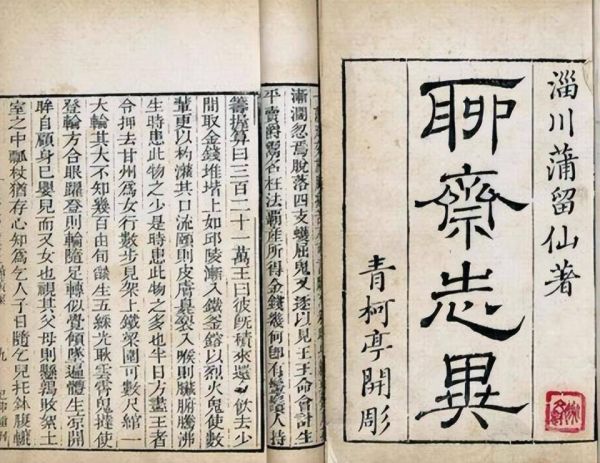 淄川蒲留仙著
聊齋志異
青柯亭開彫
漸瀾忽焉脫落四支攣屈鬼又逐以見王王命會計生
平賣爵鬻名枉法霸產所得金錢幾何即有鬡鬚人持
籌握算曰三百二十一萬王曰彼既積來還令飲去少
間取金錢堆堦上如邱陵漸入鐵釜鎔以烈火鬼使數
輩更以杓灌其口流頤則皮膚臭裂入喉則臟腑騰沸
生時患此物之少是時患此物之多也半日方盡王者
令押去甘州爲女行數步見架上鐵梁圍可數尺綰一
火輪其大不知幾百由旬燄生五綵光耿雲霄鬼撻使
登輪方合眼躍登則輪隨足轉似覺傾墜遍體生涼開
眸自顧身已嬰兒而又女也視其父母則懸鶉敗絮土
室之中瓢杖猶存心知爲乞人子日隨乞兒托鉢腹轆
九